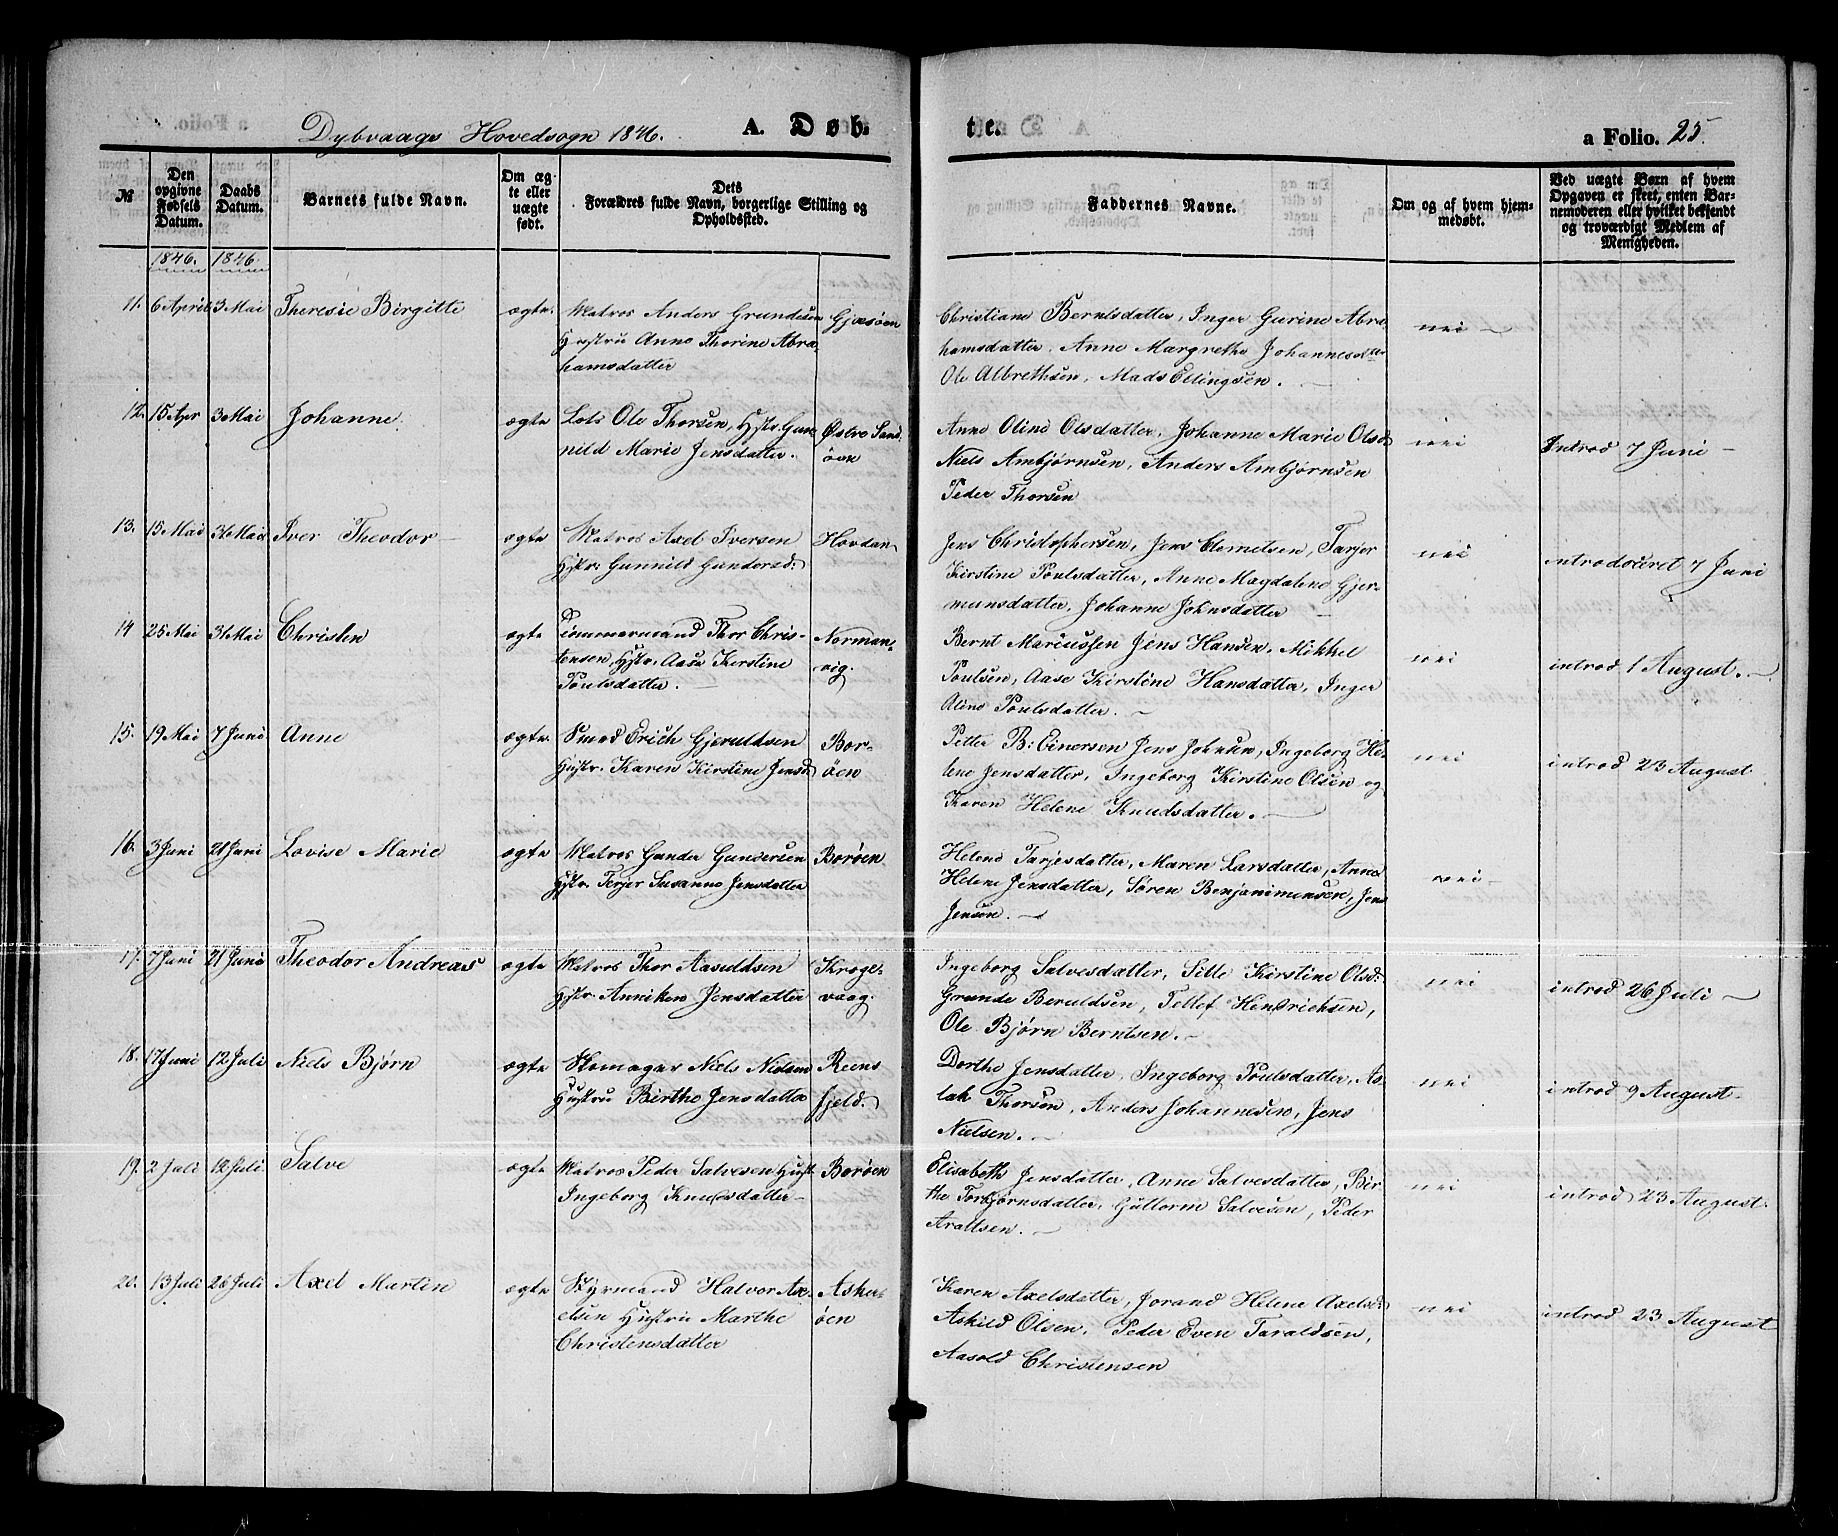 Dybvaags Hovedsogn 1846. A. Døb- te. a Folio. 25.
№ Den opgivne Fødsels Datum. Daabs Datum. Barnets fulde Navn. Om ægte eller uægte født. Dets Forældres fulde Navn, borgerlige Stilling og Opholdssted. Faddernes Navne. Om og af hvem hjemmedøbt. Ved uægte Børn af hvem Opgaven er skeet, enten Barnemoderen eller hvilket bekjendt og troværdigt Medlem af Menigheden.
1846. 1846.
11. 6 April 3 Mai Theresie Birgitte ægte. Matros Anders Grundesen Gjæsøen Christiane Berntsdatter, Inger Gurine Abra- nei —
Hustru Anne Thorine Abra- hamsdatter, Anne Margrethe Johannesda
hamsdatter Ole Albrethsen, Mads Ellingsen. —
12. 15 Apr 3 Mai Johanne. ægte Lots Ole Thorsen, Hstr. Gun- Østre Sand- Anne Oline Olsdatter, Johanne Marie Olsd nei Introd 7 Juni —
nild Marie Jensdatter. øen Niels Ambjørnsen, Anders Ambjørnsen
Peder Thorsen
13. 15 Mai 31 Mai Iver Theodor — ægte Matros Axel Iversen Hovdan Jens Christophersen, Jens Clemetsen, Tarjer nei introduceret 7 Juni
Hstr. Gunnild Gundersd: Kirstine Poulsdatter, Anne Magdalene Gjer-
mundsdatter, Johanne Johnsdatter —
14 25 Mai 31 Mai Christen ægte Tømmermand Thor Chris- Norman- Bernt Mariussen Jens Hansen, Mikkel nei introd 1 August. —
tensen, Hstr. Aase Kirstine vig. Poulsen, Aase Kirstine Hansdatter, Inger
Poulsdatter. — Aline Poulsdatter. —
15. 19 Mai 7 Juni Anne ægte. Smed Erich Gjeruldsen Bor- Petter B: Einersen Jens Johnsen, Ingeborg He- nei introd 23 August
Hustr. Karen Kirstine Jensd øen lene Jensdatter, Ingeborg Kirstine Olsen og
Karen Helene Knudsdatter. —
16. 3 Juni 21 Juni Lovise Marie ægte Matros Gunder Gundersen Borøen Helene Tarjesdatter, Maren Larsdatter, Anne nei —
Hstr. Terjer Susanne Jensdatter Helene Jensdatter, Søren Benjaminsen, Jens
Jensen. —
17. 7 Juni 21 Juni Theodor Andreas ægte Matros Thor Aasuldsen Kroge- Ingeborg Salvesdatter, Sille Kirstine Olsd: nei introd 26 Juli —
Hstr. Anniken Jensdatter vaag. Grunde Beruldsen, Tellef Hendrichsen,
Ole Bjørn Berntsen. —
18. 17 Juni 12 Juli Niels Bjørn ægte Skomager Niels Nielsen Reens Dorthe Jensdatter, Ingeborg Poulsdatter, As- nei introd 9 August —
Hustru Birthe Jensdatter fjeld. lak Thorsen, Anders Johannesen, Jens
Nielsen. —
19. 2 Juli 12 Juli. Salve ægte Matros Peder Salvesen Hust. Borøen Elisabeth Jensdatter, Anne Salvesdatter, Bir- nei introd 23 August.
Ingeborg Knudsdatter — the Torbjørnsdatter, Guttorm Salvesen, Peder
Araltsen. —
20. 13 Juli 26 Juli Axel Martin ægte Styrmand Halvor Ax- Asker- Karen Axelsdatter, Jorand Helene Axelsd: nei introd 23 August
elsen Hustru Marthe øen Askild Olsen, Peder Even Taraldsen,
Christensdatter Aasold Christensen